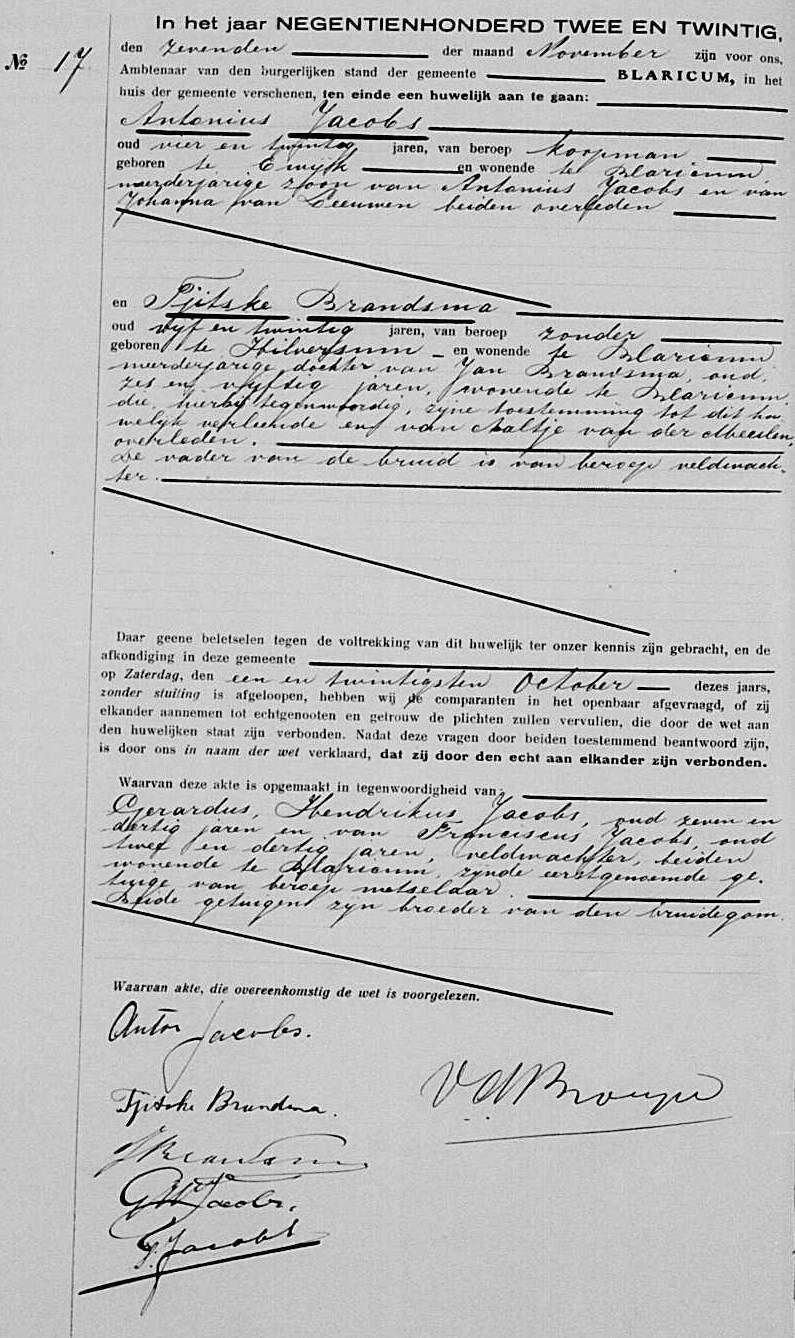 In het jaar NEGENTIENHONDERD TWEE EN TWINTIG,
№ 17 den zevenden der maand November zijn voor ons,
Ambtenaar van den burgerlijken stand der gemeente BLARICUM, in het
huis der gemeente verschenen, ten einde een huwelijk aan te gaan:
Antonius Jacobs
oud vier en twintig jaren, van beroep koopman
geboren te Ewijk en wonende te Blaricum,
meerderjarige zoon van Antonius Jacobs en van
Johanna van Leeuwen beiden overleden
en Tjitske Brandsma
oud vijf en twintig jaren, van beroep zonder
geboren te Hilversum en wonende te Blaricum
meerderjarige dochter van Jan Brandsma, oud
zes en vijftig jaren, wonende te Blaricum,
die, hierbij tegenwoordig, zijne toestemming tot dit hu
welijk verleende en van Aaltje van der Meeslen,
overleden.
De vader van de bruid is van beroep veldwach-
ter.
Daar geene beletselen tegen de voltrekking van dit huwelijk ter onzer kennis zijn gebracht, en de
afkondiging in deze gemeente
op Zaterdag, den een en twintigsten October dezes jaars,
zonder stuiting is afgeloopen, hebben wij de comparanten in het openbaar afgevraagd, of zij
elkander aannemen tot echtgenooten en getrouw de plichten zullen vervullen, die door de wet aan
den huwelijken staat zijn verbonden. Nadat deze vragen door beiden toestemmend beantwoord zijn,
is door ons in naam der wet verklaard, dat zij door den echt aan elkander zijn verbonden.
Waarvan deze akte is opgemaakt in tegenwoordigheid van:
Gerardus, Hendrikus Jacobs, oud zeven en
dertig jaren en van Franciscus Jacobs, oud
twee en dertig jaren, veldwachter, beiden
wonende te Blaricum, zijnde eerstgenoemde ge-
tuige van beroep metselaar.
Beide getuigen zijn broeder van den bruidegom.
Waarvan akte, die overeenkomstig de wet is voorgelezen.
Anton Jacobs.
Tjitske Brandsma.
JBrandsma
GHJacobs.
F. Jacobs